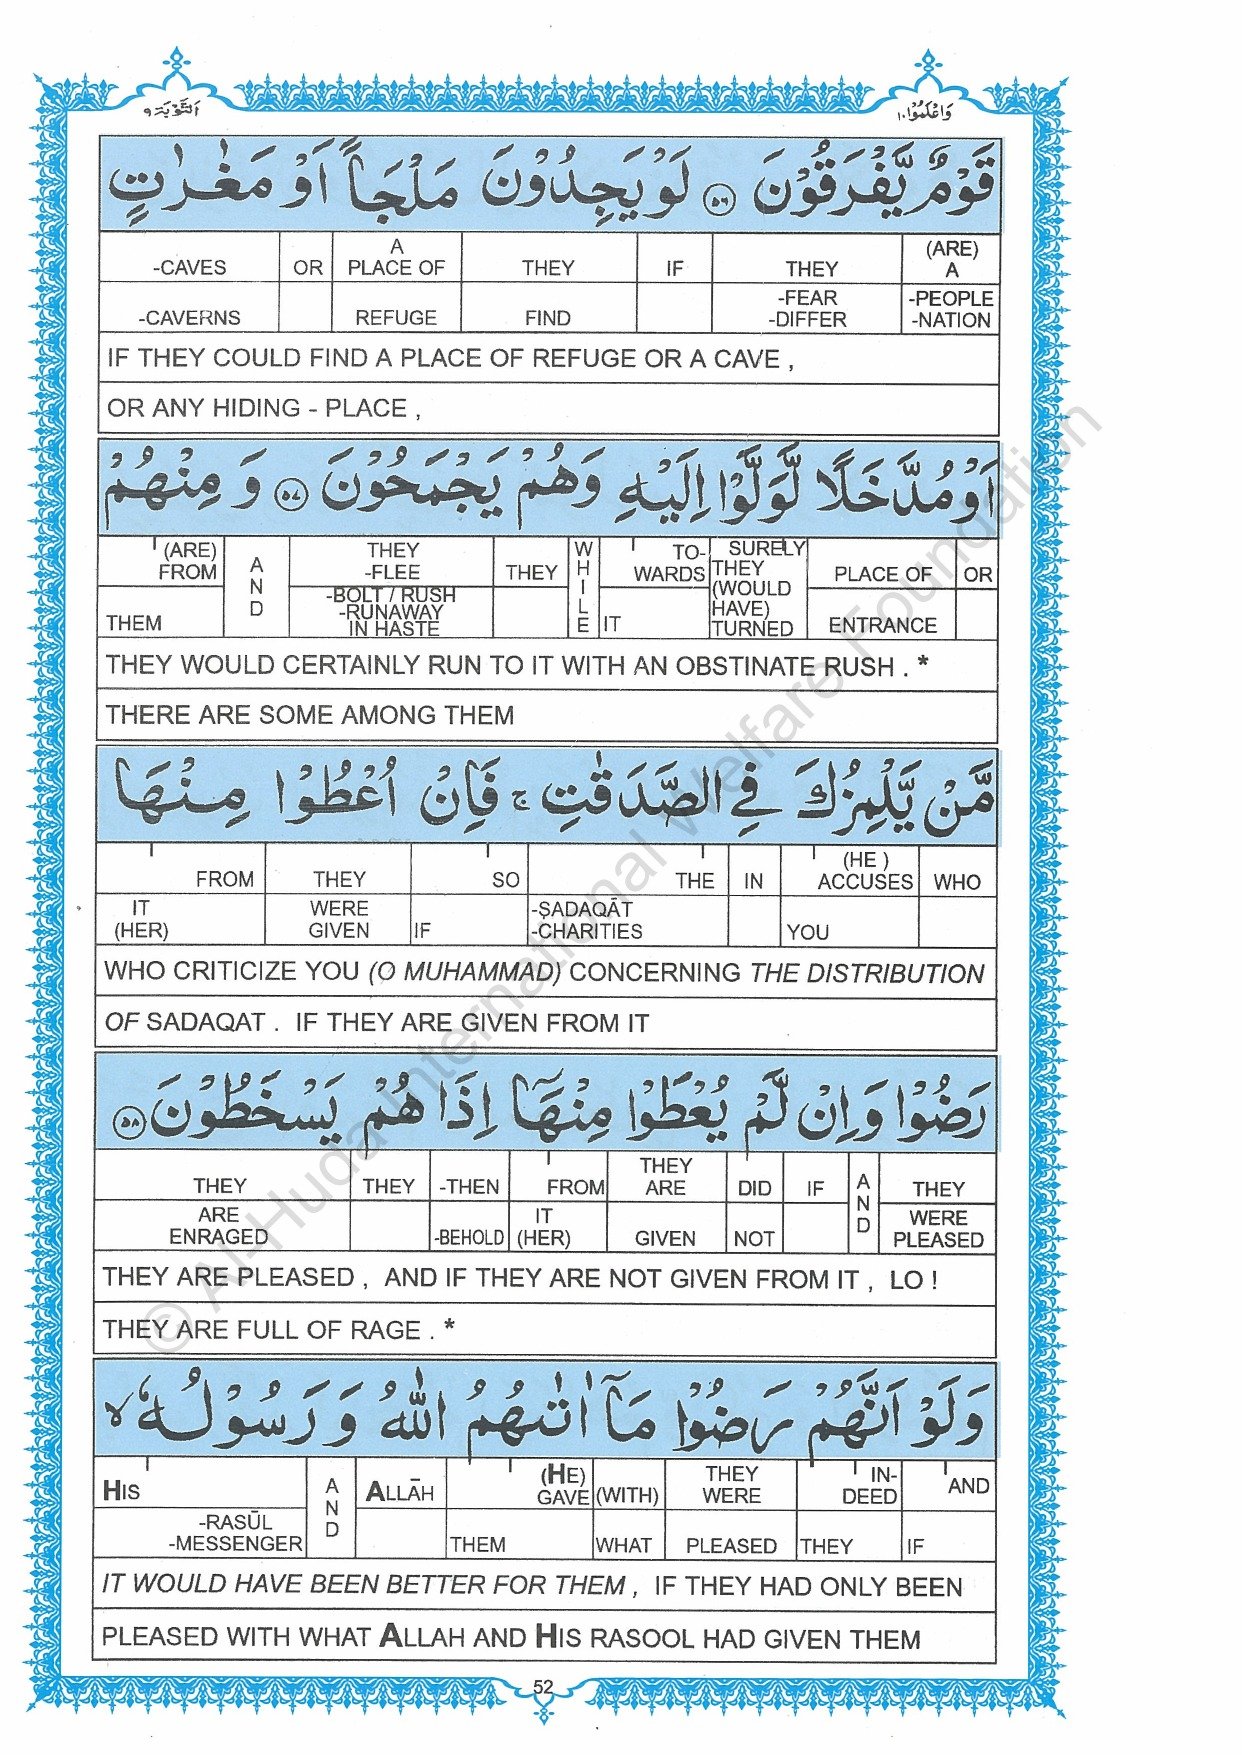 التَّوْبَة ٩
وَاعْلَمُوْا ١٠
قَوْمٌ يَّفْرَقُوْنَ ﴿٥٦﴾ لَوْ يَجِدُوْنَ مَلْجَاً اَوْ مَغٰرٰتٍ
-CAVES OR A PLACE OF THEY IF THEY (ARE) A
-CAVERNS REFUGE FIND -FEAR -DIFFER -PEOPLE -NATION
IF THEY COULD FIND A PLACE OF REFUGE OR A CAVE ,
OR ANY HIDING - PLACE ,
اَوْ مُدَّخَلًا لَّوَلَّوْا اِلَيْهِ وَهُمْ يَجْمَحُوْنَ ﴿٥٧﴾ وَ مِنْهُمْ
(ARE) FROM AND THEY -FLEE THEY WHILE TO- WARDS SURELY THEY (WOULD HAVE) TURNED PLACE OF OR
THEM -BOLT / RUSH -RUNAWAY IN HASTE IT ENTRANCE
THEY WOULD CERTAINLY RUN TO IT WITH AN OBSTINATE RUSH . *
THERE ARE SOME AMONG THEM
مَّنْ يَّلْمِزُكَ فِي الصَّدَقٰتِ ۚ فَاِنْ اُعْطُوْا مِنْهَا
FROM THEY SO THE IN (HE ) ACCUSES WHO
IT (HER) WERE GIVEN IF -ṢADAQĀT -CHARITIES YOU
WHO CRITICIZE YOU (O MUHAMMAD) CONCERNING THE DISTRIBUTION
OF SADAQAT . IF THEY ARE GIVEN FROM IT
رَضُوْا وَاِنْ لَّمْ يُعْطَوْا مِنْهَآ اِذَا هُمْ يَسْخَطُوْنَ ﴿٥٨﴾
THEY THEY -THEN FROM THEY ARE DID IF AND THEY
ARE ENRAGED -BEHOLD IT (HER) GIVEN NOT WERE PLEASED
THEY ARE PLEASED , AND IF THEY ARE NOT GIVEN FROM IT , LO !
THEY ARE FULL OF RAGE . *
وَلَوْ اَنَّهُمْ رَضُوْا مَآ اٰتٰىهُمُ اللّٰهُ وَ رَسُوْلُهٗ ۙ
HIS AND ALLĀH (HE) GAVE (WITH) THEY WERE IN- DEED AND
-RASŪL -MESSENGER THEM WHAT PLEASED THEY IF
IT WOULD HAVE BEEN BETTER FOR THEM , IF THEY HAD ONLY BEEN
PLEASED WITH WHAT ALLAH AND HIS RASOOL HAD GIVEN THEM
52
© Al-Huda International Welfare Foundation